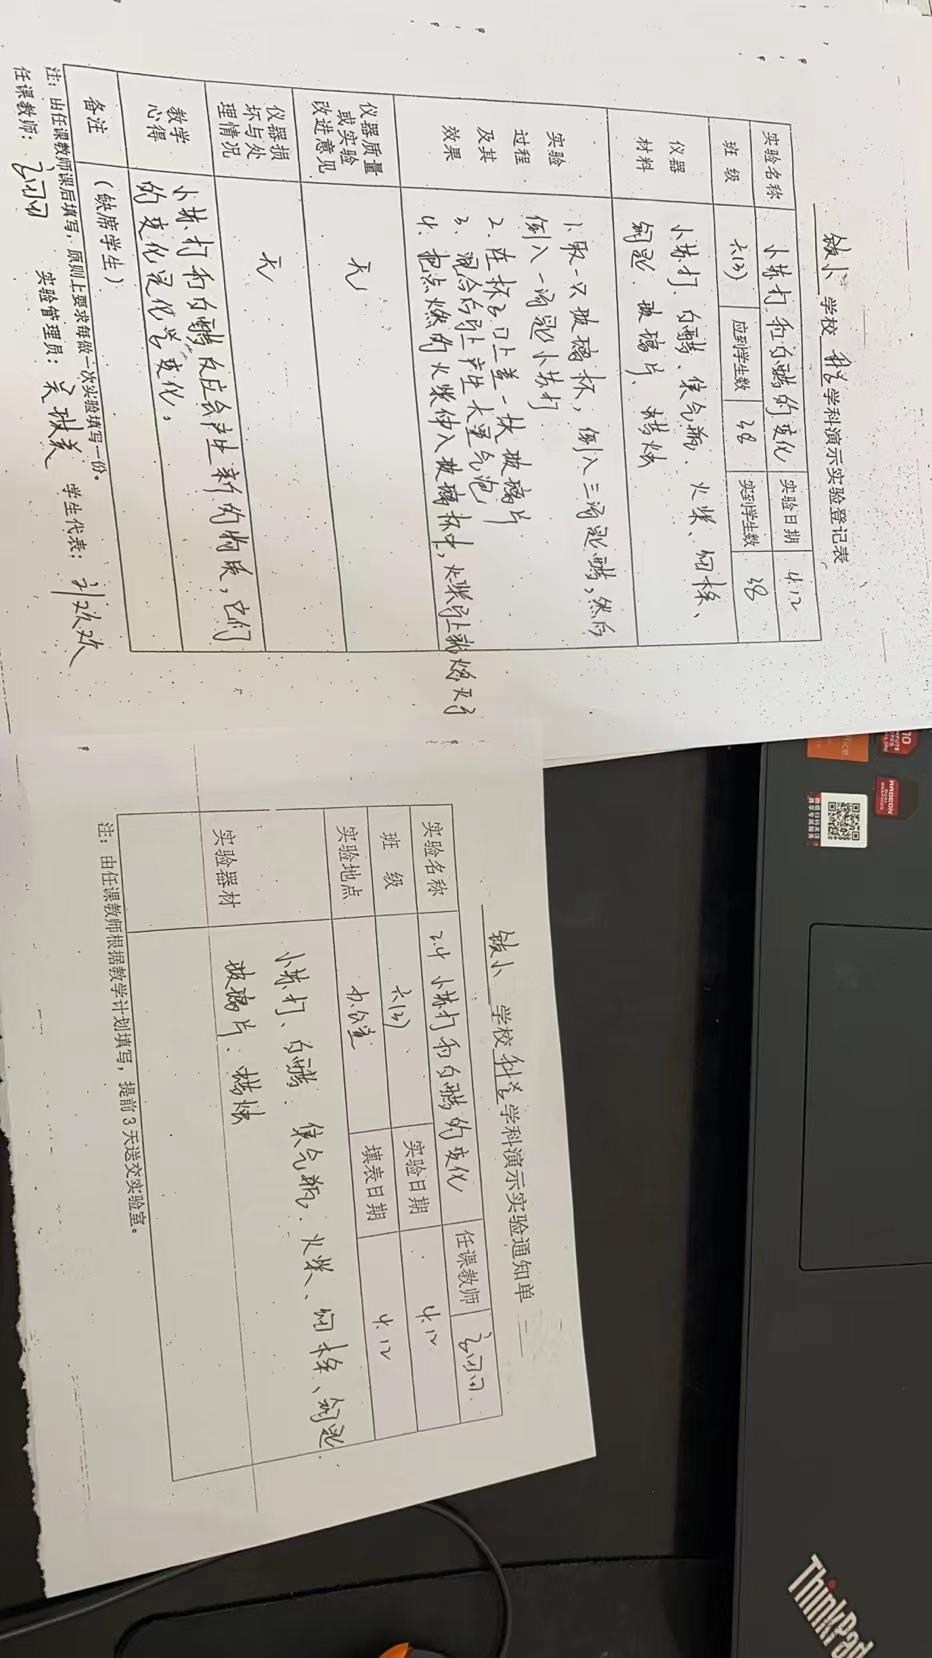 镇小 学校 科学 学科演示实验登记表
实验名称 小苏打和白醋的变化 实验日期 4.12
班 级 六(3) 应到学生数 38 实到学生数 38
仪器材料 小苏打、白醋、集气瓶、火柴、细木条、
钥匙、玻璃片、蜡烛
实验过程及其效果 1.取一只玻璃杯,倒入三汤匙醋,然后
倒入一汤匙小苏打
2.在杯口上盖一块玻璃片
3.混合后马上产生大量气泡
4.把点燃的火柴伸入玻璃杯中,火柴马上就熄灭了
仪器质量或实验改进意见 无
仪器损坏与处理情况 无
教学心得 小苏打和白醋反应会产生新的物质,它们
的变化是化学变化。
备注 (缺席学生)
注:由任课教师课后填写,原则上要求每做一次实验填写一份。
任课教师: 实验管理员:吴 学生代表:
镇小 学校 科学 学科演示实验通知单
实验名称 2.4 小苏打和白醋的变化 任课教师
班 级 六(3) 实验日期 4.12
实验地点 办公室 填表日期 4.12
实验器材 小苏打、白醋、集气瓶、火柴、细木条、钥匙、
玻璃片、蜡烛
注:由任课教师根据教学计划填写,提前3天送交实验室。
RADEON
GRAPHICS
ThinkPad